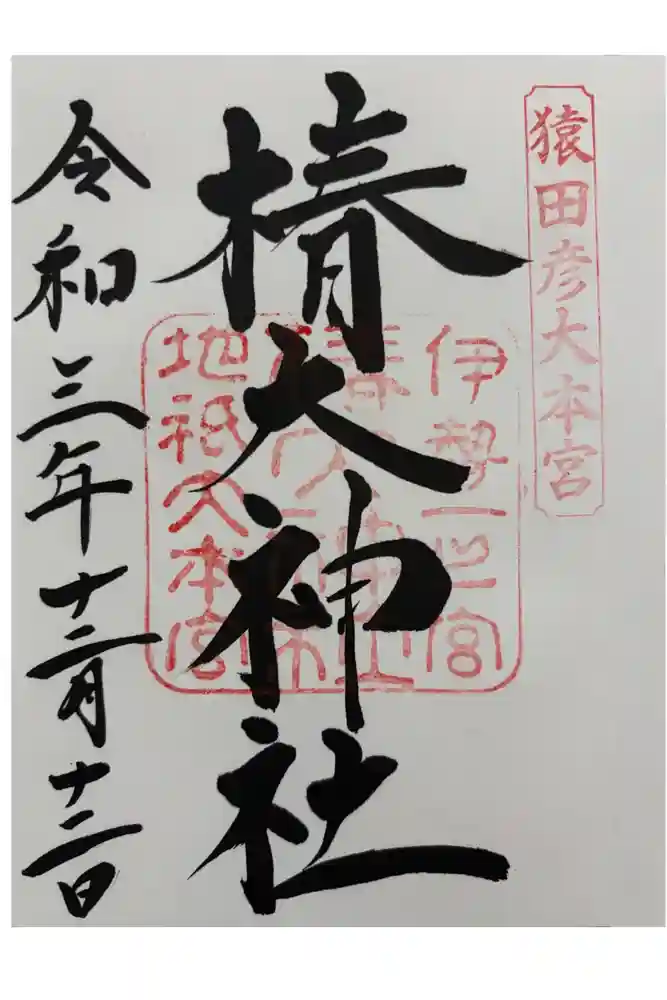 猿田彦大本宮
伊勢一之宮
地祇大本宮
椿大神社
令和三年十二月十二日